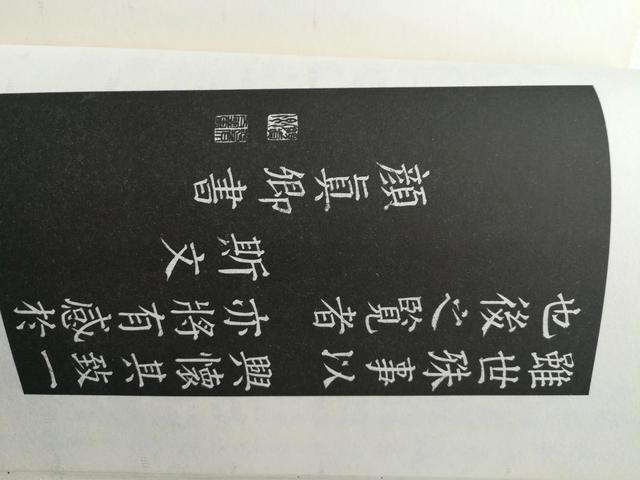 雖世殊事以興懷其致一
也後之覽者亦將有感於
斯文
顏眞卿書